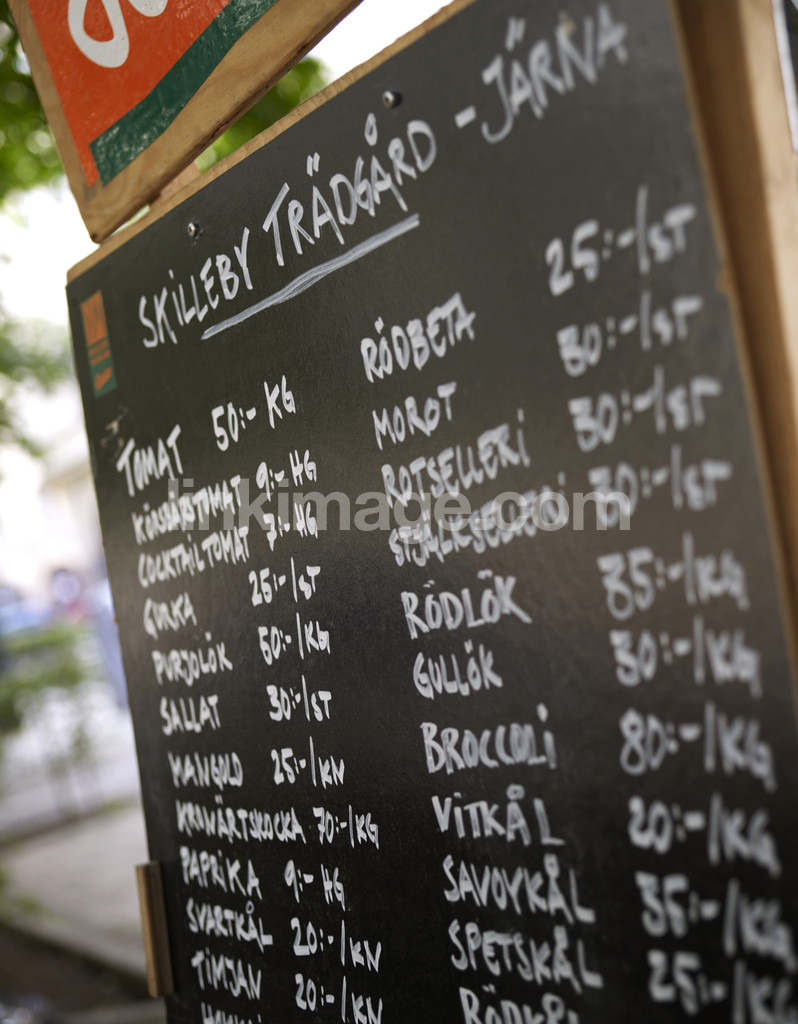 SKILLEBY TRÄDGÅRD - JÄRNA
TOMAT 50:- KG
KÖRSBÄRSTOMAT 9:- HG
COCKTAILTOMAT 7:- HG
GURKA 25:-/ST
PURJOLÖK 50:-/KG
SALLAT 30:-/ST
MANGOLD 25:-/KN
KRONÄRTSKOCKA 70:-/KG
PAPRIKA 9:- HG
SVARTKÅL 20:-/KN
TIMJAN 20:-/KN
RÖDBETA 25:-/ST
MOROT 30:-/ST
ROTSELLERI 30:-/ST
STJÄLKSELLERI 30:-/ST
RÖDLÖK 35:-/KG
GULLÖK 30:-/KG
BROCCOLI 80:-/KG
VITKÅL 20:-/KG
SAVOYKÅL 35:-/KG
SPETSKÅL 25:-/KG
linkimage.com